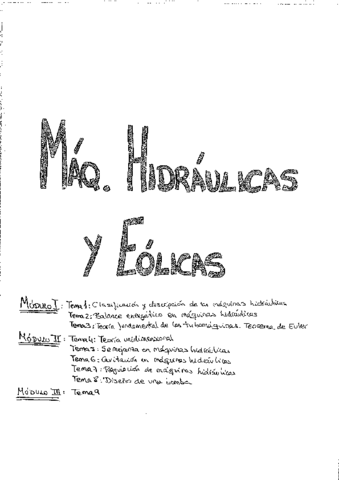 MÁQ. HIDRÁULICAS
Y EÓLICAS
MÓDULO I: Tema 1: Clasificación y descripción de las máquinas hidráulicas
Tema 2: Balance energético en máquinas hidráulicas
Tema 3: Teoría fundamental de las turbomáquinas. Teorema de Euler
MÓDULO II: Tema 4: Teoría unidimensional
Tema 5: Semejanza en máquinas hidráulicas
Tema 6: Cavitación en máquinas hidráulicas
Tema 7: Regulación de máquinas hidráulicas
Tema 8: Diseño de una bomba
MÓDULO III: Tema 9